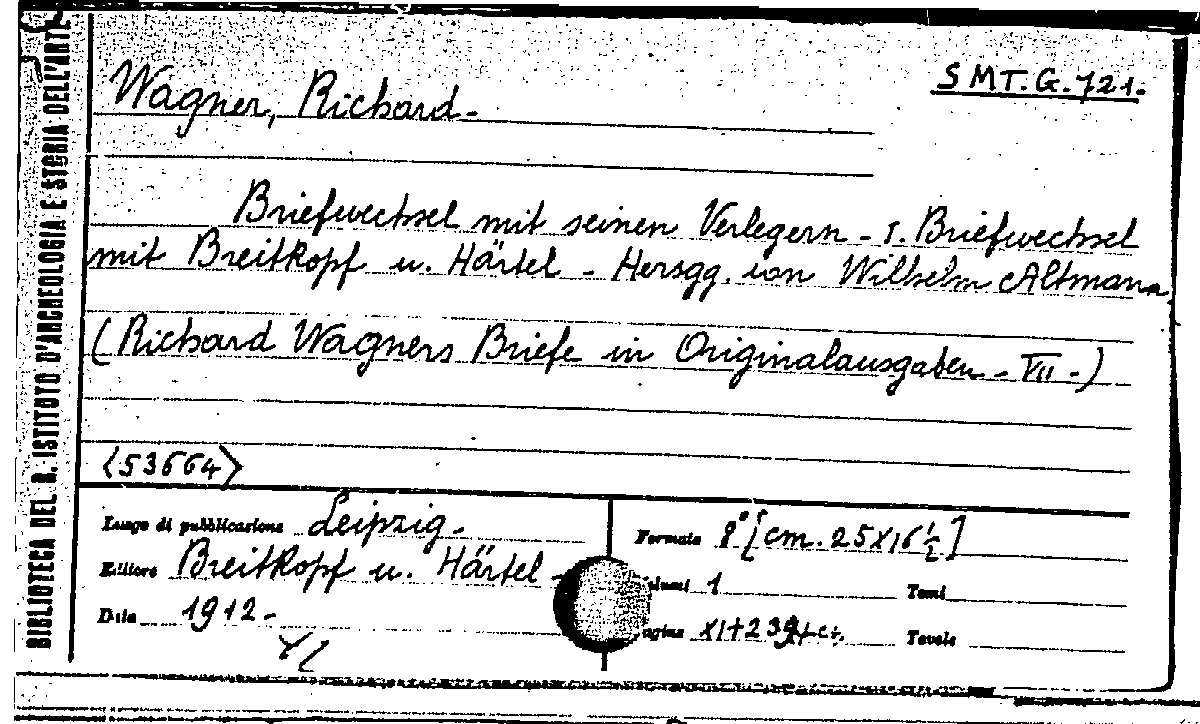 BIBLIOTECA DEL R. ISTITUTO D'ARCHEOLOGIA E STORIA DELL'ARTE
SMT.G.721.
Wagner, Richard-
Briefwechsel mit seinen Verlegern - I. Briefwechsel
mit Breitkopf u. Härtel - Hersgg. von Wilhelm Altmann
(Richard Wagners Briefe in Originalausgaben - VII -)
<53664>
Luogo di pubblicazione Leipzig -
Editore Breitkopf u. Härtel -
Data 1912 -
Formato 8° [cm. 25x16 1/2]
Volumi 1 Tomi
Pagine XI+239 Tavole